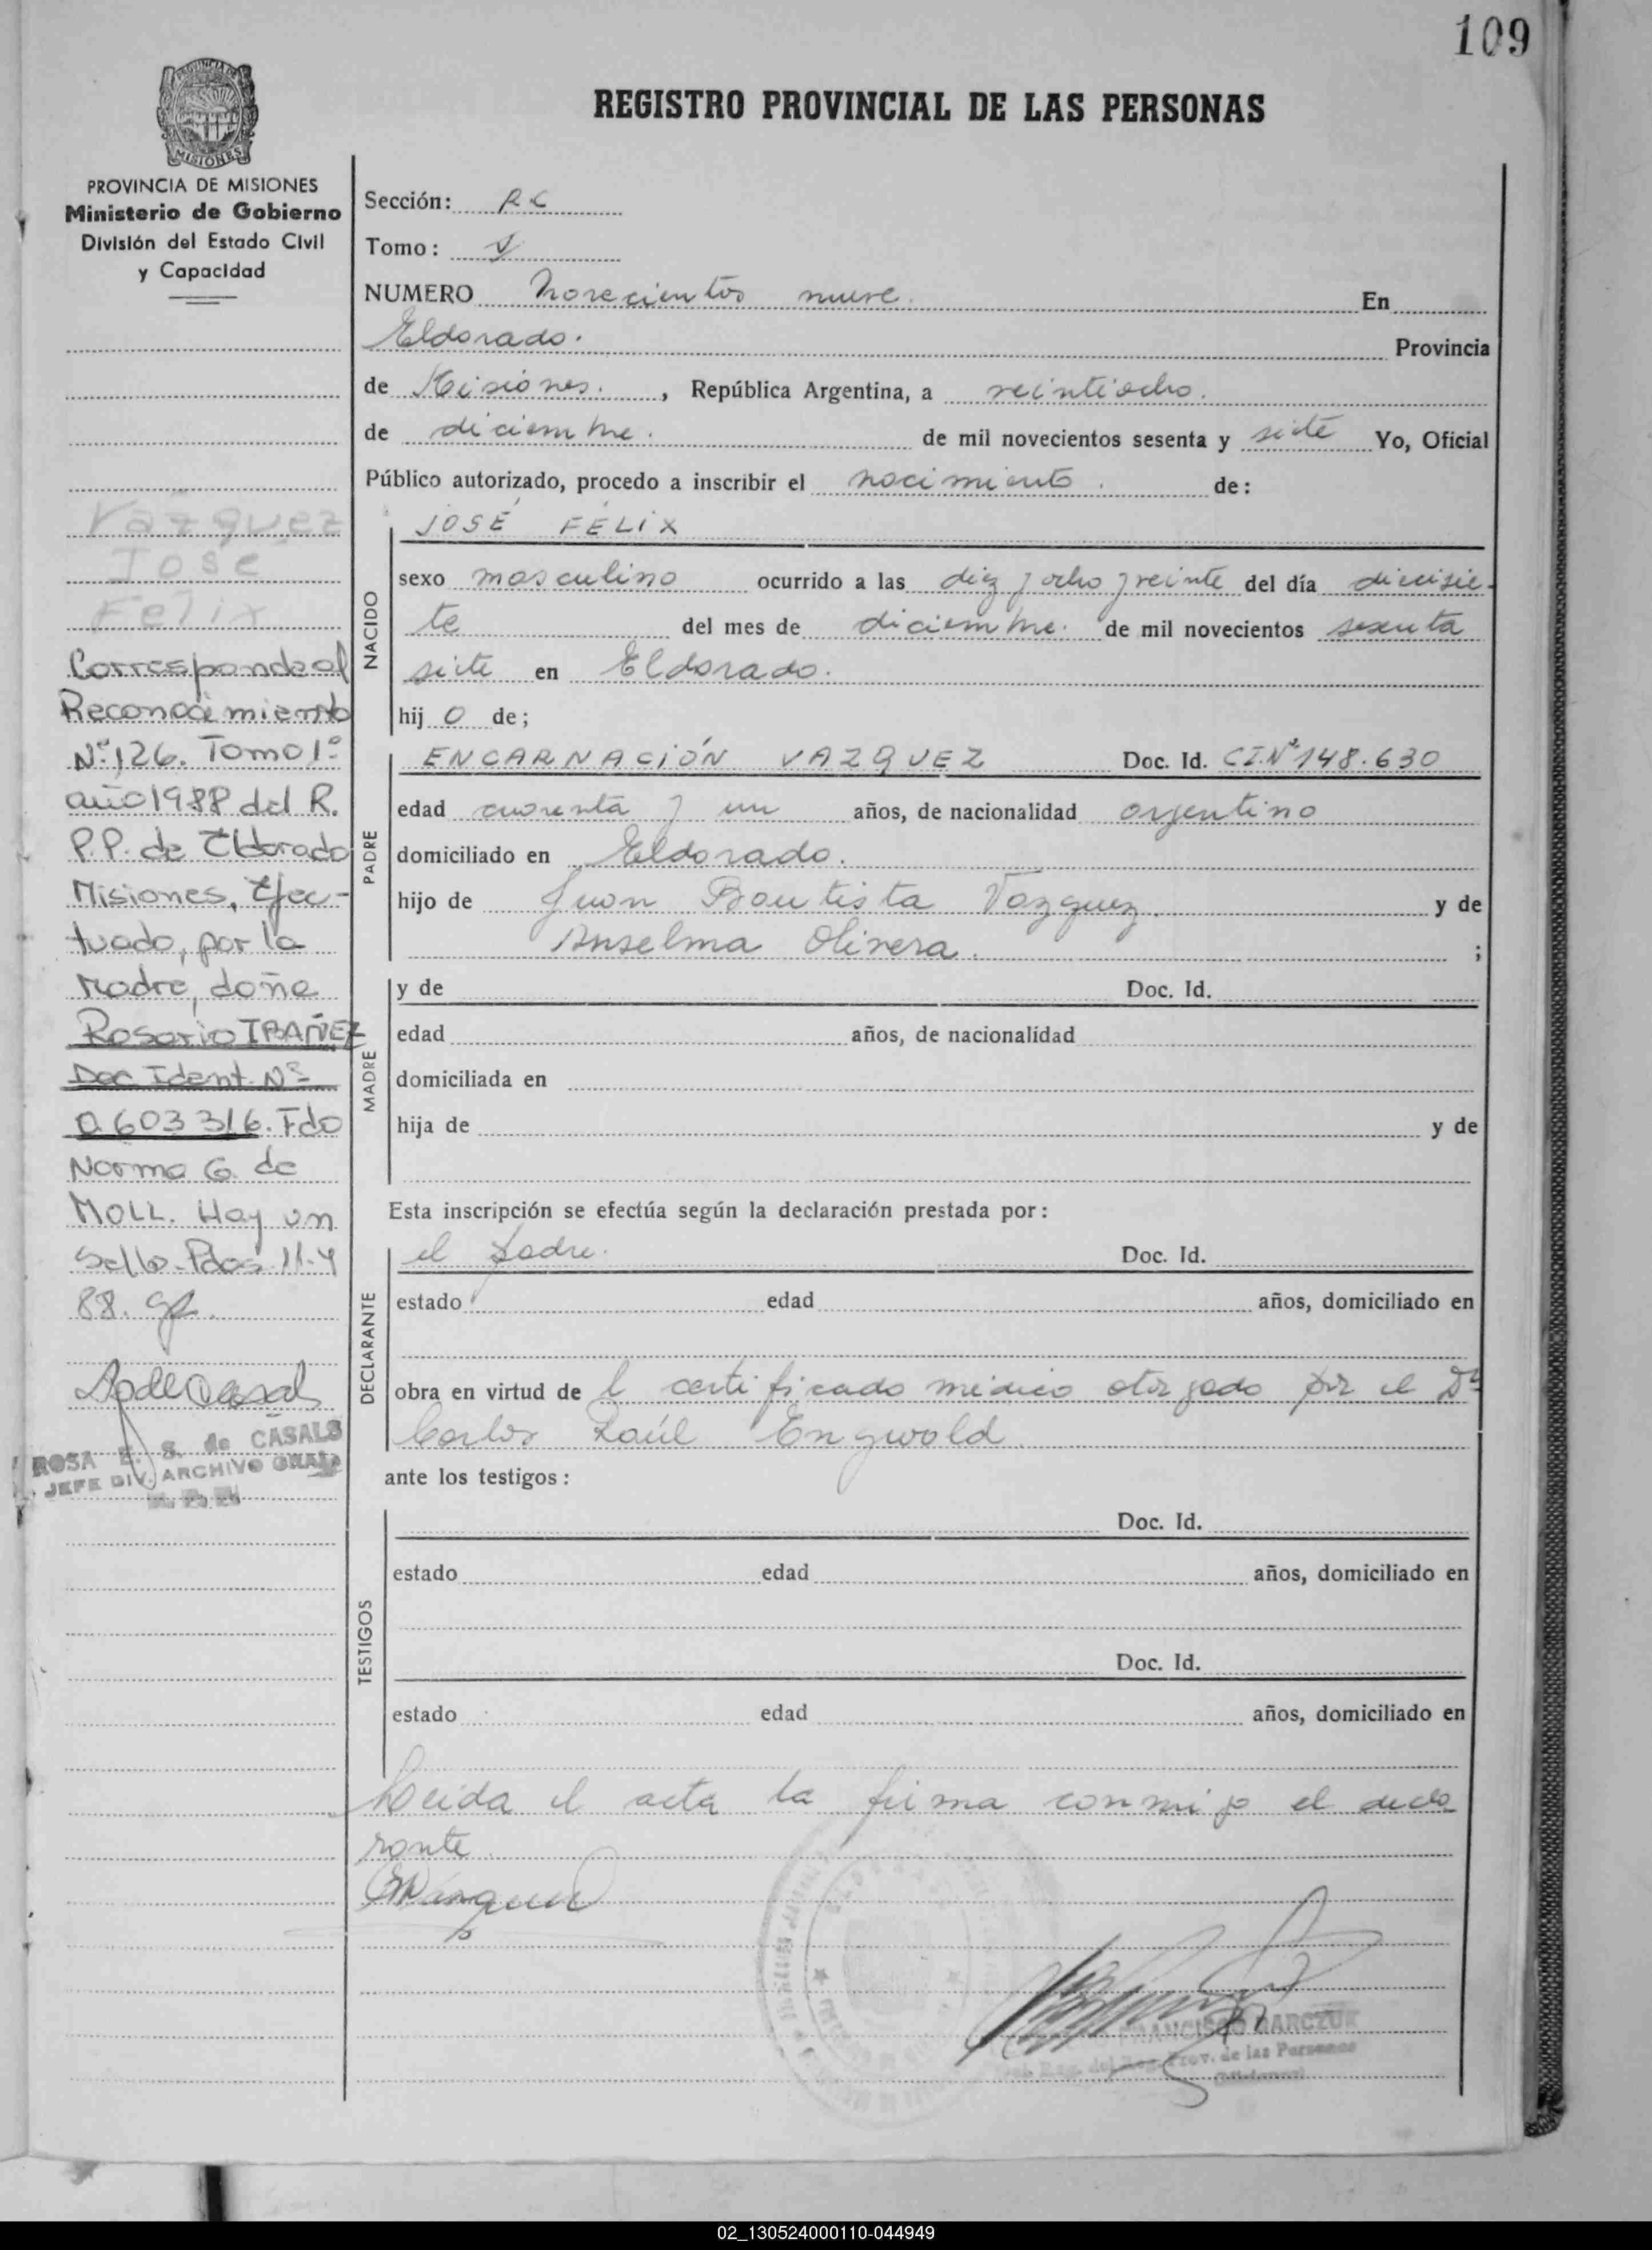 109
REGISTRO PROVINCIAL DE LAS PERSONAS
PROVINCIA DE MISIONES
MISIONES
PROVINCIA DE MISIONES
Ministerio de Gobierno
División del Estado Civil
y Capacidad
Vázquez
José
Felix
Corresponde al
Reconocimiento
Nº 126. Tomo 1º
año 1988 del R.
P.P. de Eldorado
Misiones, Efec-
tuado, por la
Madre, doña
Rosario IBAÑEZ
Doc Ident. Nº
0.603316. Fdo
Norma G. de
MOLL. Hay un
Sello. Pdas 11-4
88.
ROSA E. S. de CASALS
JEFE DIV. ARCHIVO GRAL
Sección: RC
Tomo: V
NUMERO Novecientos nueve. En
Eldorado. Provincia
de Misiones. , República Argentina, a veintiocho.
de diciembre. de mil novecientos sesenta y siete Yo, Oficial
Público autorizado, procedo a inscribir el nacimiento. de:
NACIDO
JOSÉ FÉLIX
sexo masculino ocurrido a las diez y ocho y veinte del día diecisie-
te del mes de diciembre. de mil novecientos sesenta
siete en Eldorado.
hij o de;
PADRE
ENCARNACIÓN VAZQUEZ Doc. Id. C.I.Nº 148.630
edad cuarenta y un años, de nacionalidad argentino
domiciliado en Eldorado.
hijo de Juan Bautista Vazquez. y de
Anselma Olivera. ;
MADRE
y de Doc. Id.
edad años, de nacionalidad
domiciliada en
hija de y de
Esta inscripción se efectúa según la declaración prestada por:
DECLARANTE
el padre. Doc. Id.
estado edad años, domiciliado en
obra en virtud de l certificado médico otorgado por el Dr
Carlos Raúl Engwald.
ante los testigos:
TESTIGOS
Doc. Id.
estado edad años, domiciliado en
Doc. Id.
estado edad años, domiciliado en
Leída el acta la firma conmigo el decla
rante.
FRANCISCO MARCZUK
Reg. del Reg. Prov. de las Personas
02_130524000110-044949